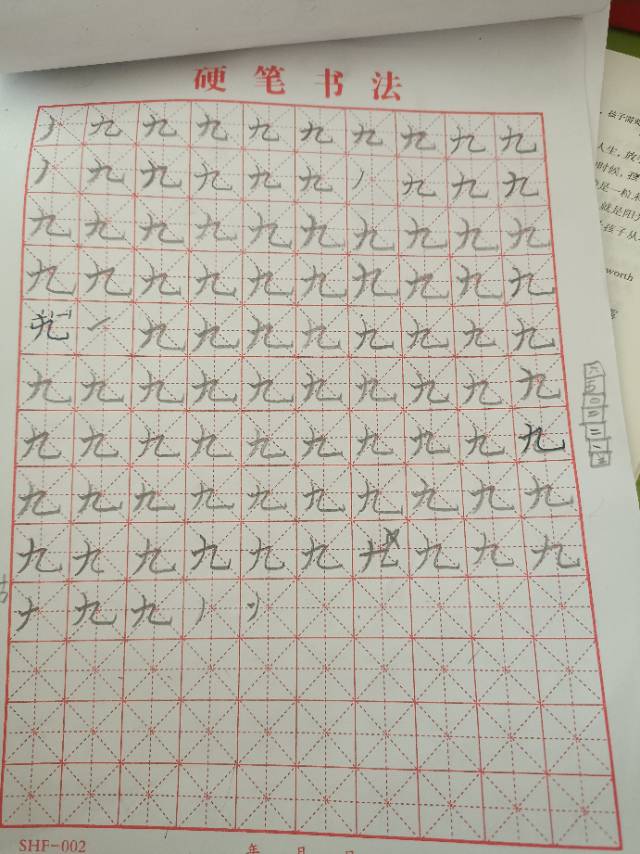 硬笔书法
九 九 九 九 九 九 九 九 九
九 九 九 九 九 九 九 九
九 九 九 九 九 九 九 九 九 九
九 九 九 九 九 九 九 九 九 九
九 一 九 九 九 九 九 九 九 九
九 九 九 九 九 九 九 九 九 九
九 九 九 九 九 九 九 九 九 九
九 九 九 九 九 九 九 九 九 九
九 九 九 九 九 九 九 九 九 九
九 九
SHF-002
年 月 日
人生，
时候，
是一粒
就是阳
孩子从
worth